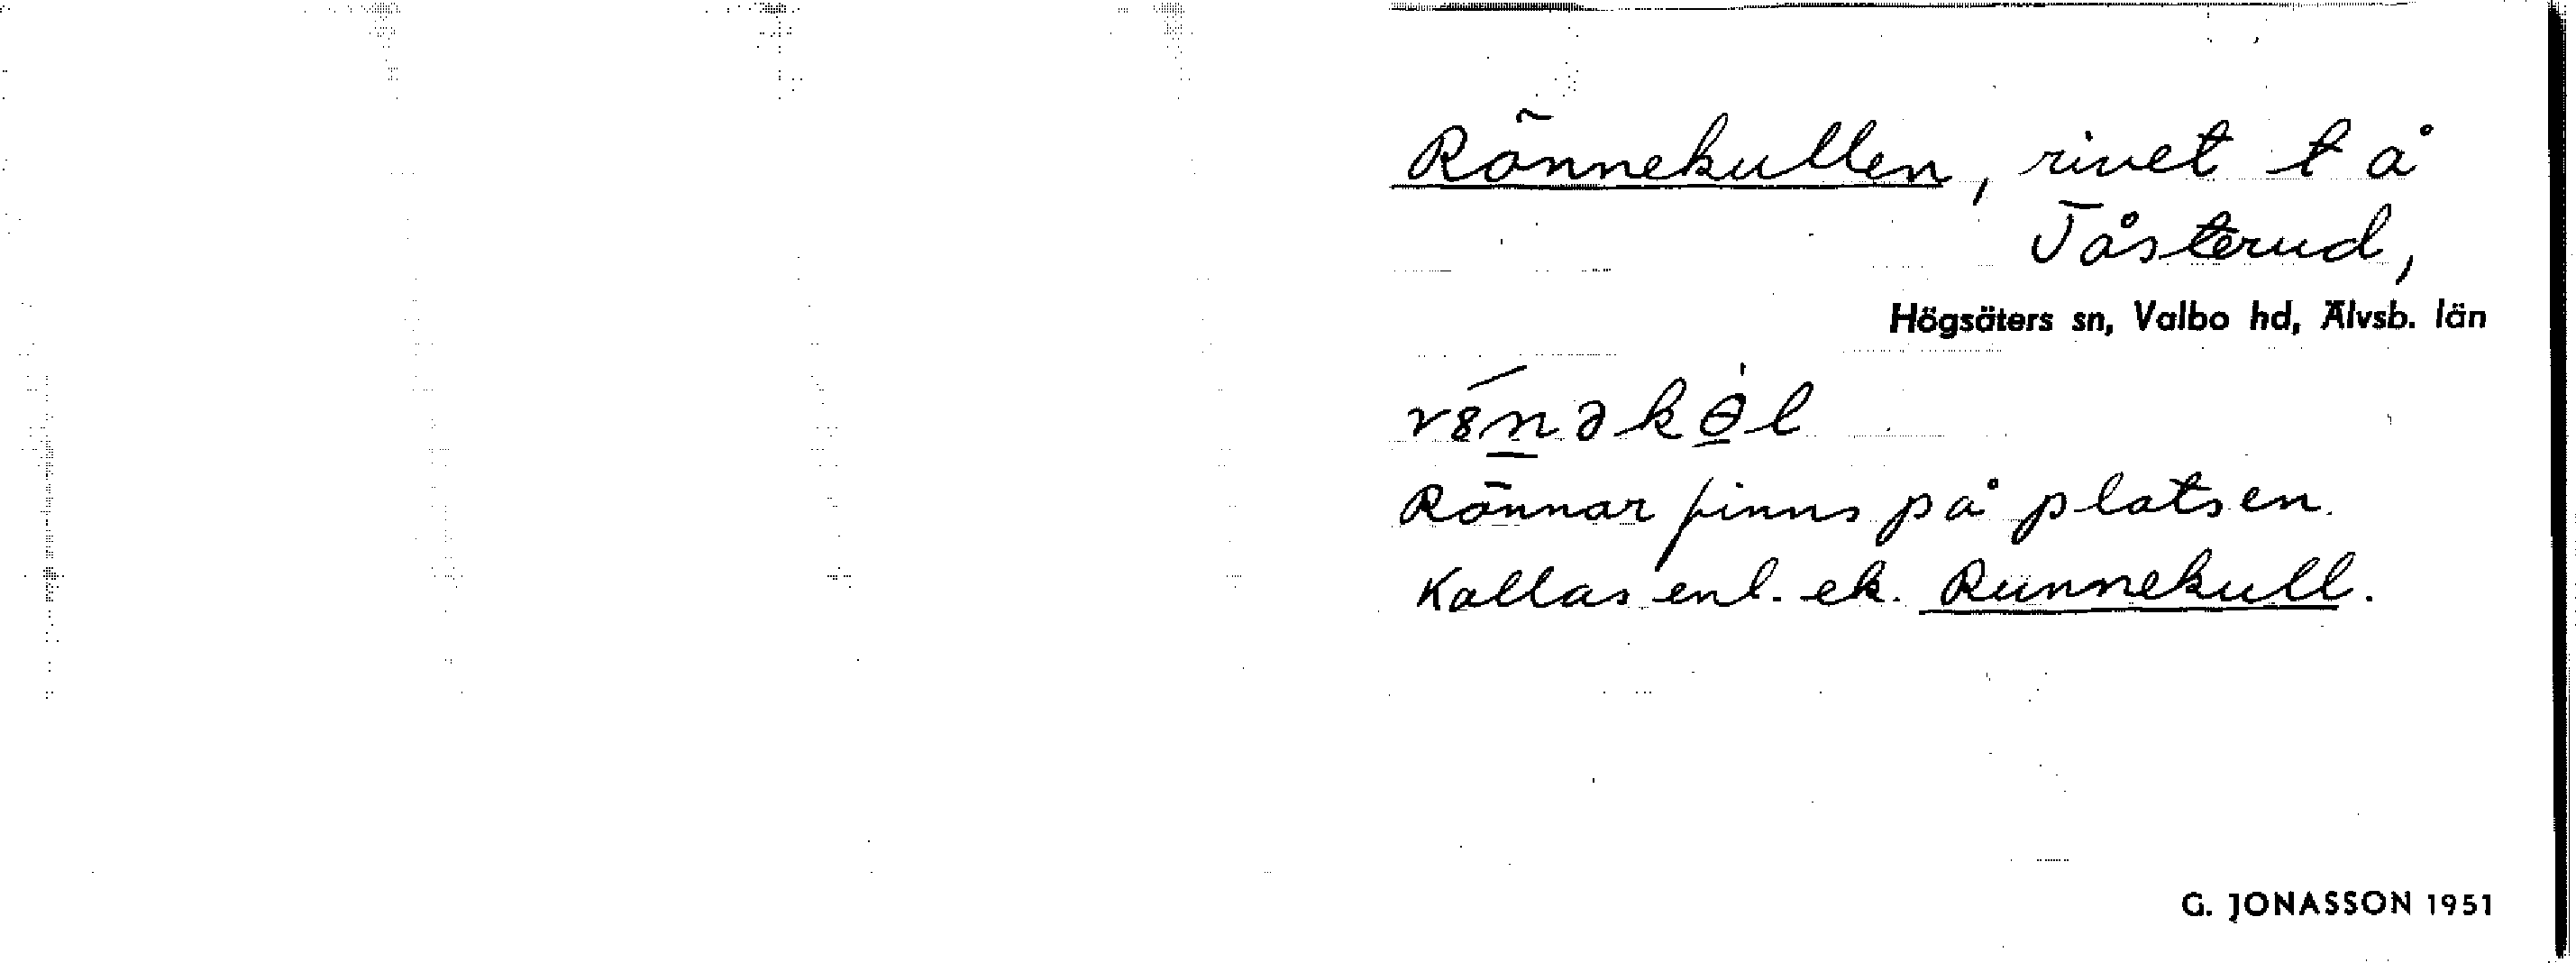 Rönnekullen, rivet t å
Tåsterud,
Högsäters sn, Valbo hd, Älvsb. län
Rönnar finns på platsen.
Kallas enl. ek. Runnekull.
G. JONASSON 1951